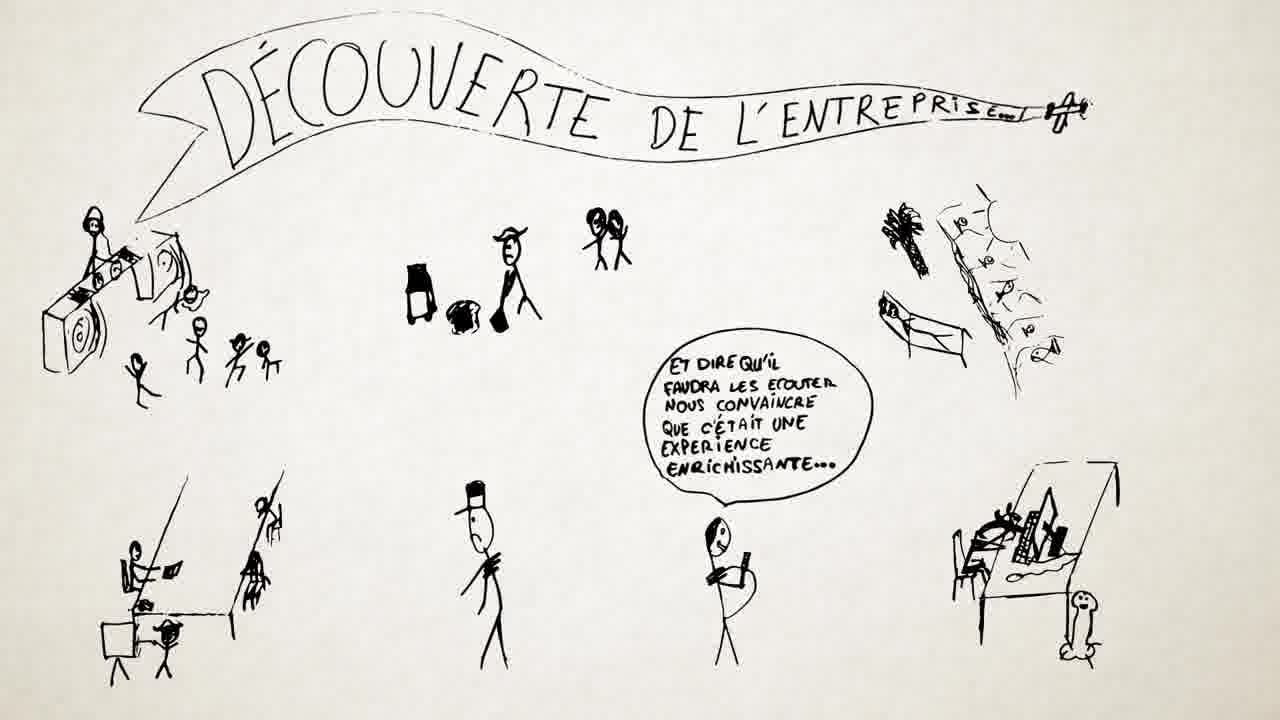 DÉCOUVERTE DE L'ENTREPRISE...
ET DIRE QU'IL
FAUDRA LES ECOUTER
NOUS CONVAINCRE
QUE C'ÉTAIT UNE
EXPERIENCE
ENRICHISSANTE...